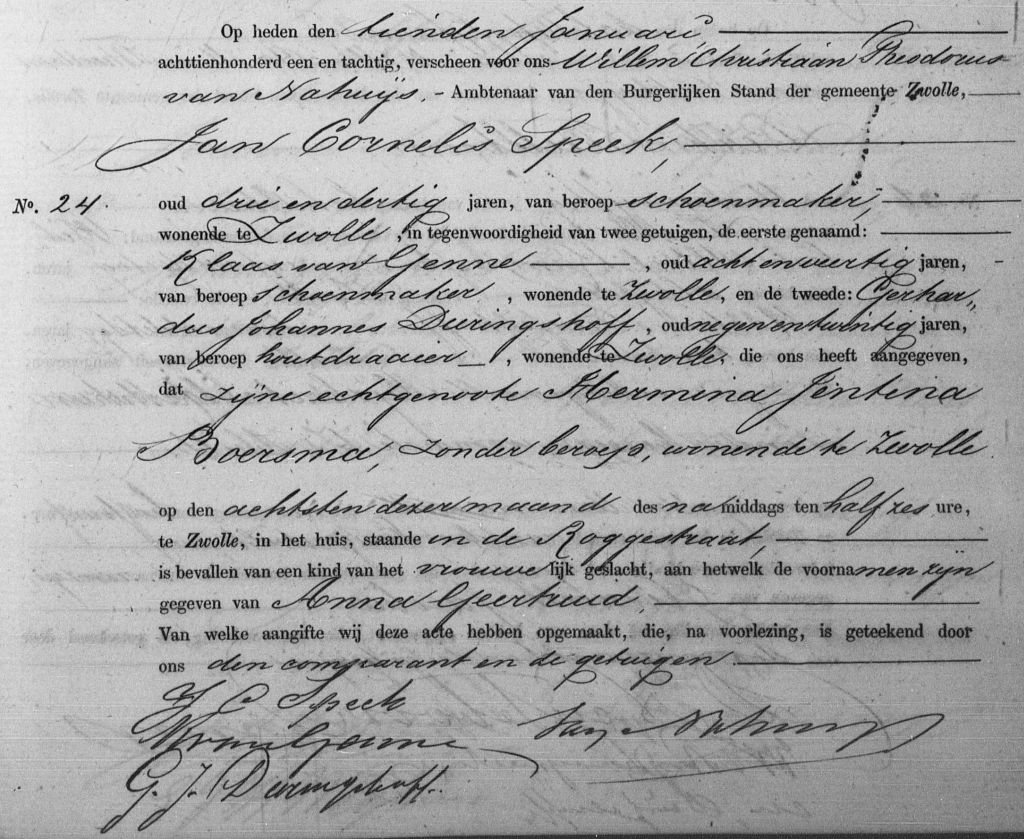 Op heden den tienden Januari
achttienhonderd een en tachtig, verscheen vóór ons Willem Christiaan Theodorus
van Nahuijs. - Ambtenaar van den Burgerlijken Stand der gemeente Zwolle,
Jan Cornelis Speek,
No. 24.
oud drie en dertig jaren, van beroep schoenmaker,
wonende te Zwolle, in tegenwoordigheid van twee getuigen, de eerste genaamd:
Klaas van Genne, oud acht en veertig jaren,
van beroep schoenmaker, wonende te Zwolle, en de tweede: Gerhar„
dus Johannes Duringshoff, oud negen en twintig jaren,
van beroep houtdraaier, wonende te Zwolle, die ons heeft aangegeven,
dat zijne echtgenoote Hermina Jentina
Boersma, zonder beroep, wonende te Zwolle
op den achtsten dezer maand des namiddags ten half zes ure,
te Zwolle, in het huis, staande in de Roggestraat,
is bevallen van een kind van het vrouwelijk geslacht, aan hetwelk de voornamen zijn
gegeven van Anna Geertruid,
Van welke aangifte wij deze acte hebben opgemaakt, die, na voorlezing, is geteekend door
ons den comparant en de getuigen.
J C Speek
van Genne van Nahuys
G. J. Duringshoff.